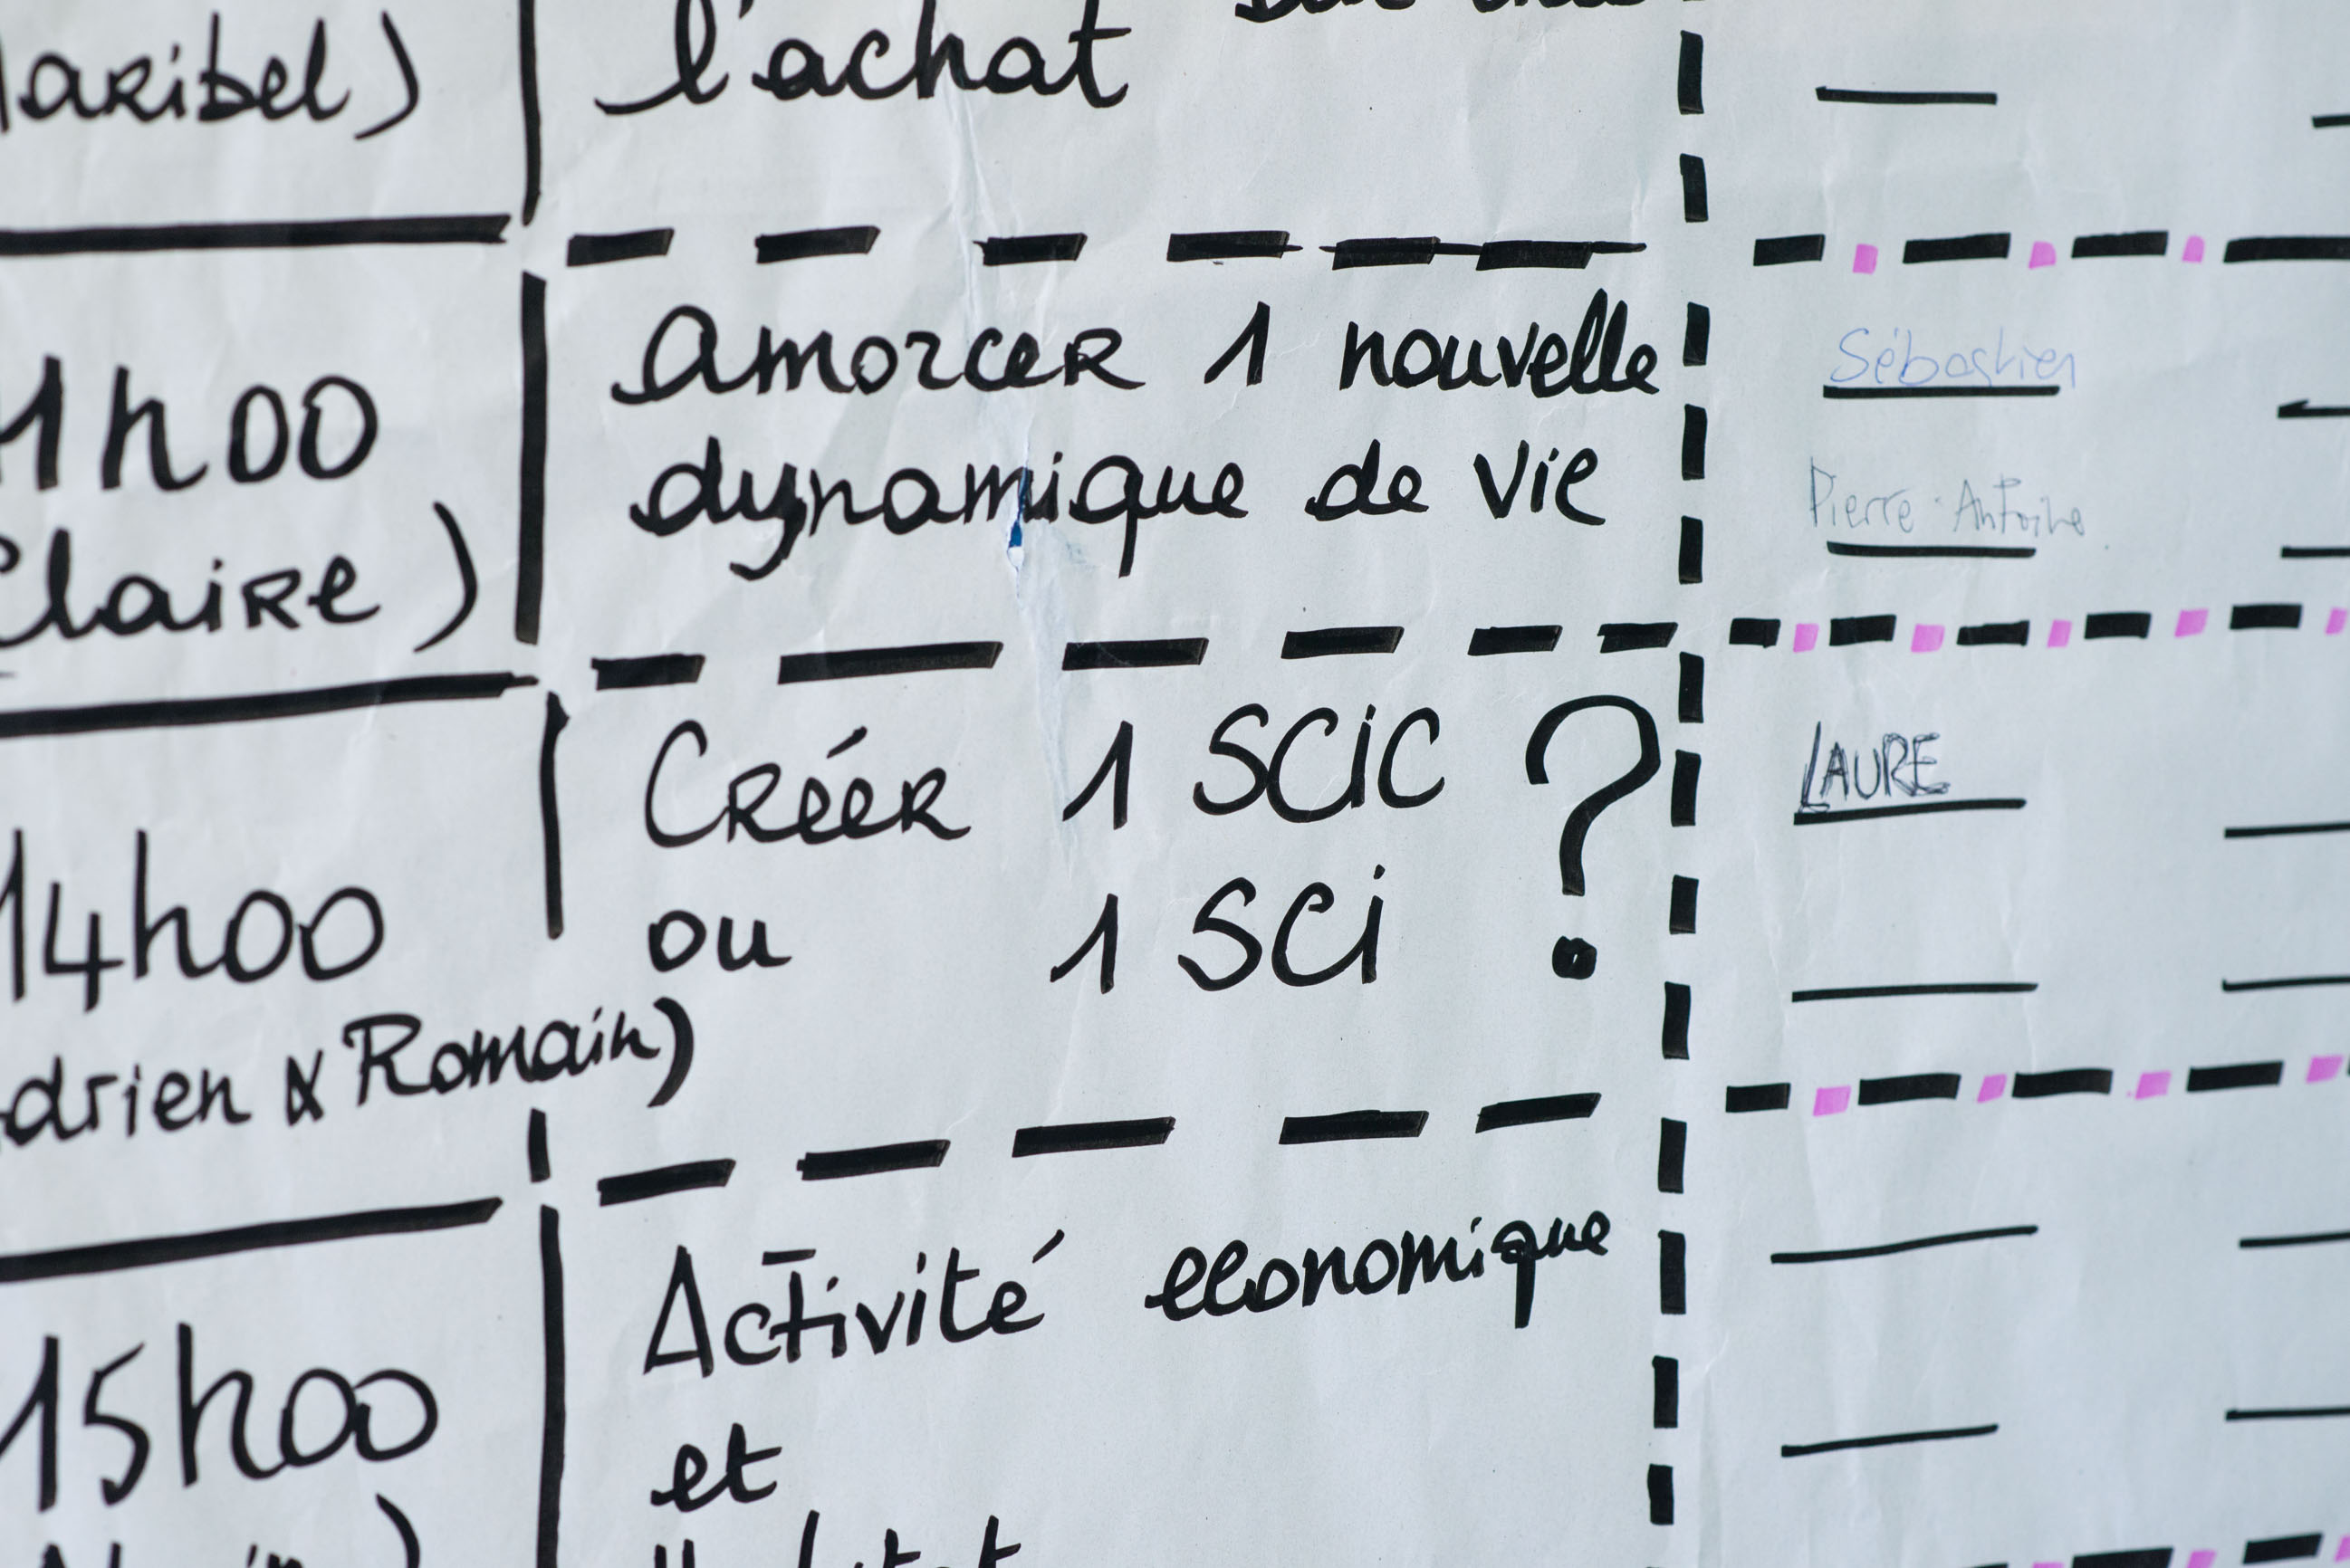 l'achat
aribel)
amorcer 1 nouvelle
Sébastien
1h00
dynamique de vie
Pierre-Antoine
Claire)
Créer 1 SCIC ?
LAURE
14h00
ou 1 SCI
drien & Romain)
Activité economique
15h00
et